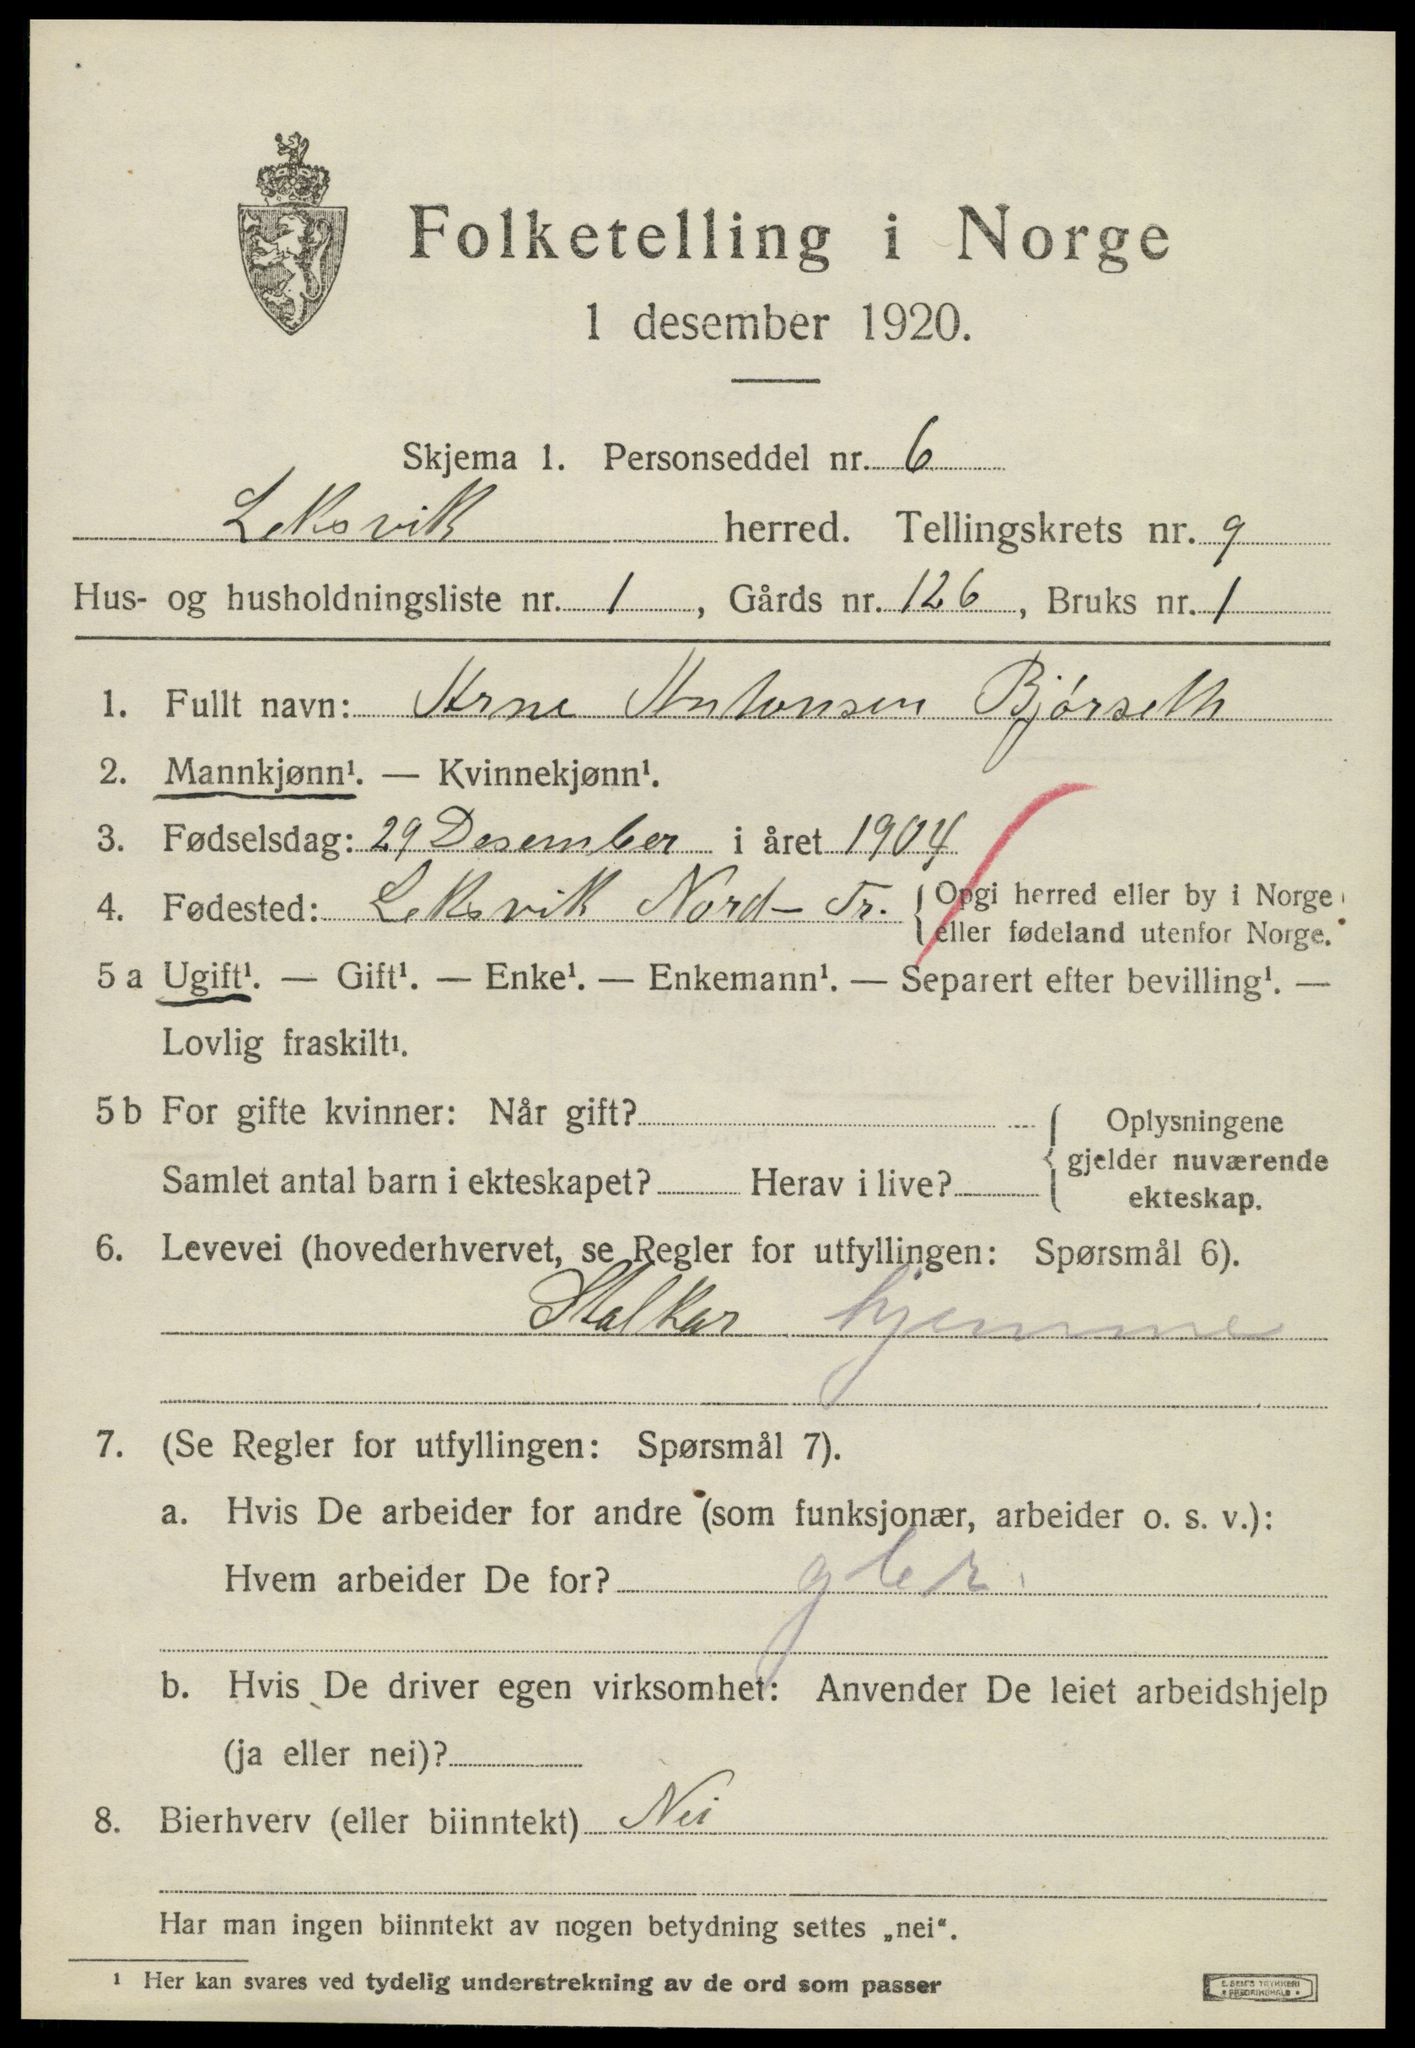 Folketelling i Norge
1 desember 1920.
Skjema 1. Personseddel nr. 6
Leksvik herred. Tellingskrets nr. 9
Hus- og husholdningsliste nr. 1, Gårds nr. 126, Bruks nr. 1
1. Fullt navn: Arne Antonsen Bjørseth
2. Mannkjønn¹. — Kvinnekjønn¹.
3. Fødselsdag: 29 Desember i året 1904
4. Fødested: Leksvik Nord-Tr. { Opgi herred eller by i Norge
eller fødeland utenfor Norge.
5 a Ugift¹. — Gift¹. — Enke¹. — Enkemann¹. — Separert efter bevilling¹. —
Lovlig fraskilt¹.
5 b For gifte kvinner: Når gift?
Samlet antal barn i ekteskapet? Herav i live?
{ Oplysningene
gjelder nuværende
ekteskap.
6. Levevei (hovederhvervet, se Regler for utfyllingen: Spørsmål 6).
Stalkar hjemme
7. (Se Regler for utfyllingen: Spørsmål 7).
a. Hvis De arbeider for andre (som funksjonær, arbeider o. s. v.):
Hvem arbeider De for?
b. Hvis De driver egen virksomhet: Anvender De leiet arbeidshjelp
(ja eller nei)?
8. Bierhverv (eller biinntekt) Nei
Har man ingen biinntekt av nogen betydning settes „nei“.
¹ Her kan svares ved tydelig understrekning av de ord som passer
E. SEM'S TRYKKERI
FREDRIKSHALD